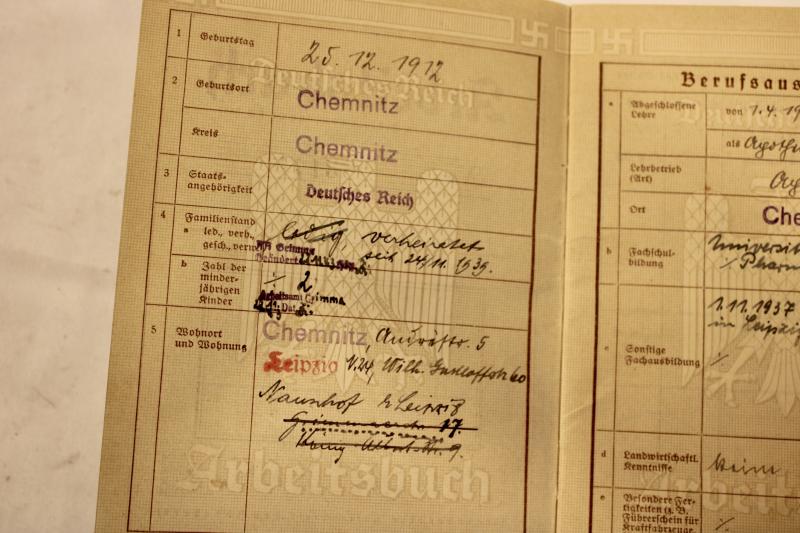 1 Geburtstag 25. 12. 1912
Deutsches Reich
2 Geburtsort Chemnitz
Kreis Chemnitz
3 Staats-
angehörigkeit Deutsches Reich
4 Familienstand
a led., verh., ledig verheiratet
gesch., verw. seit 24/11. 1939.
b Zahl der
minder-
jährigen 2
Kinder
Arbeitsamt Grimma
5 Wohnort
und Wohnung
Chemnitz, Andréstr. 5
Leipzig N.24, Wilh. Gustloffstr. 60
Naunhof b Leipzig
17.
König Albert-Str. 9.
Arbeitsbuch
Berufsaus
a Abgeschlossene
Lehre
von 1.4.19
als Apoth
Lehrbetrieb
(Art) Ap
Ort Che
b Fachschul-
bildung
Universit
Pharm
1.11.1937
in Leipzig
c Sonstige
Fachausbildung
d Landwirtschaftl.
Kenntnisse keine
e Besondere Fer-
tigkeiten (z. B.
Führerschein für
Kraftfahrzeuge